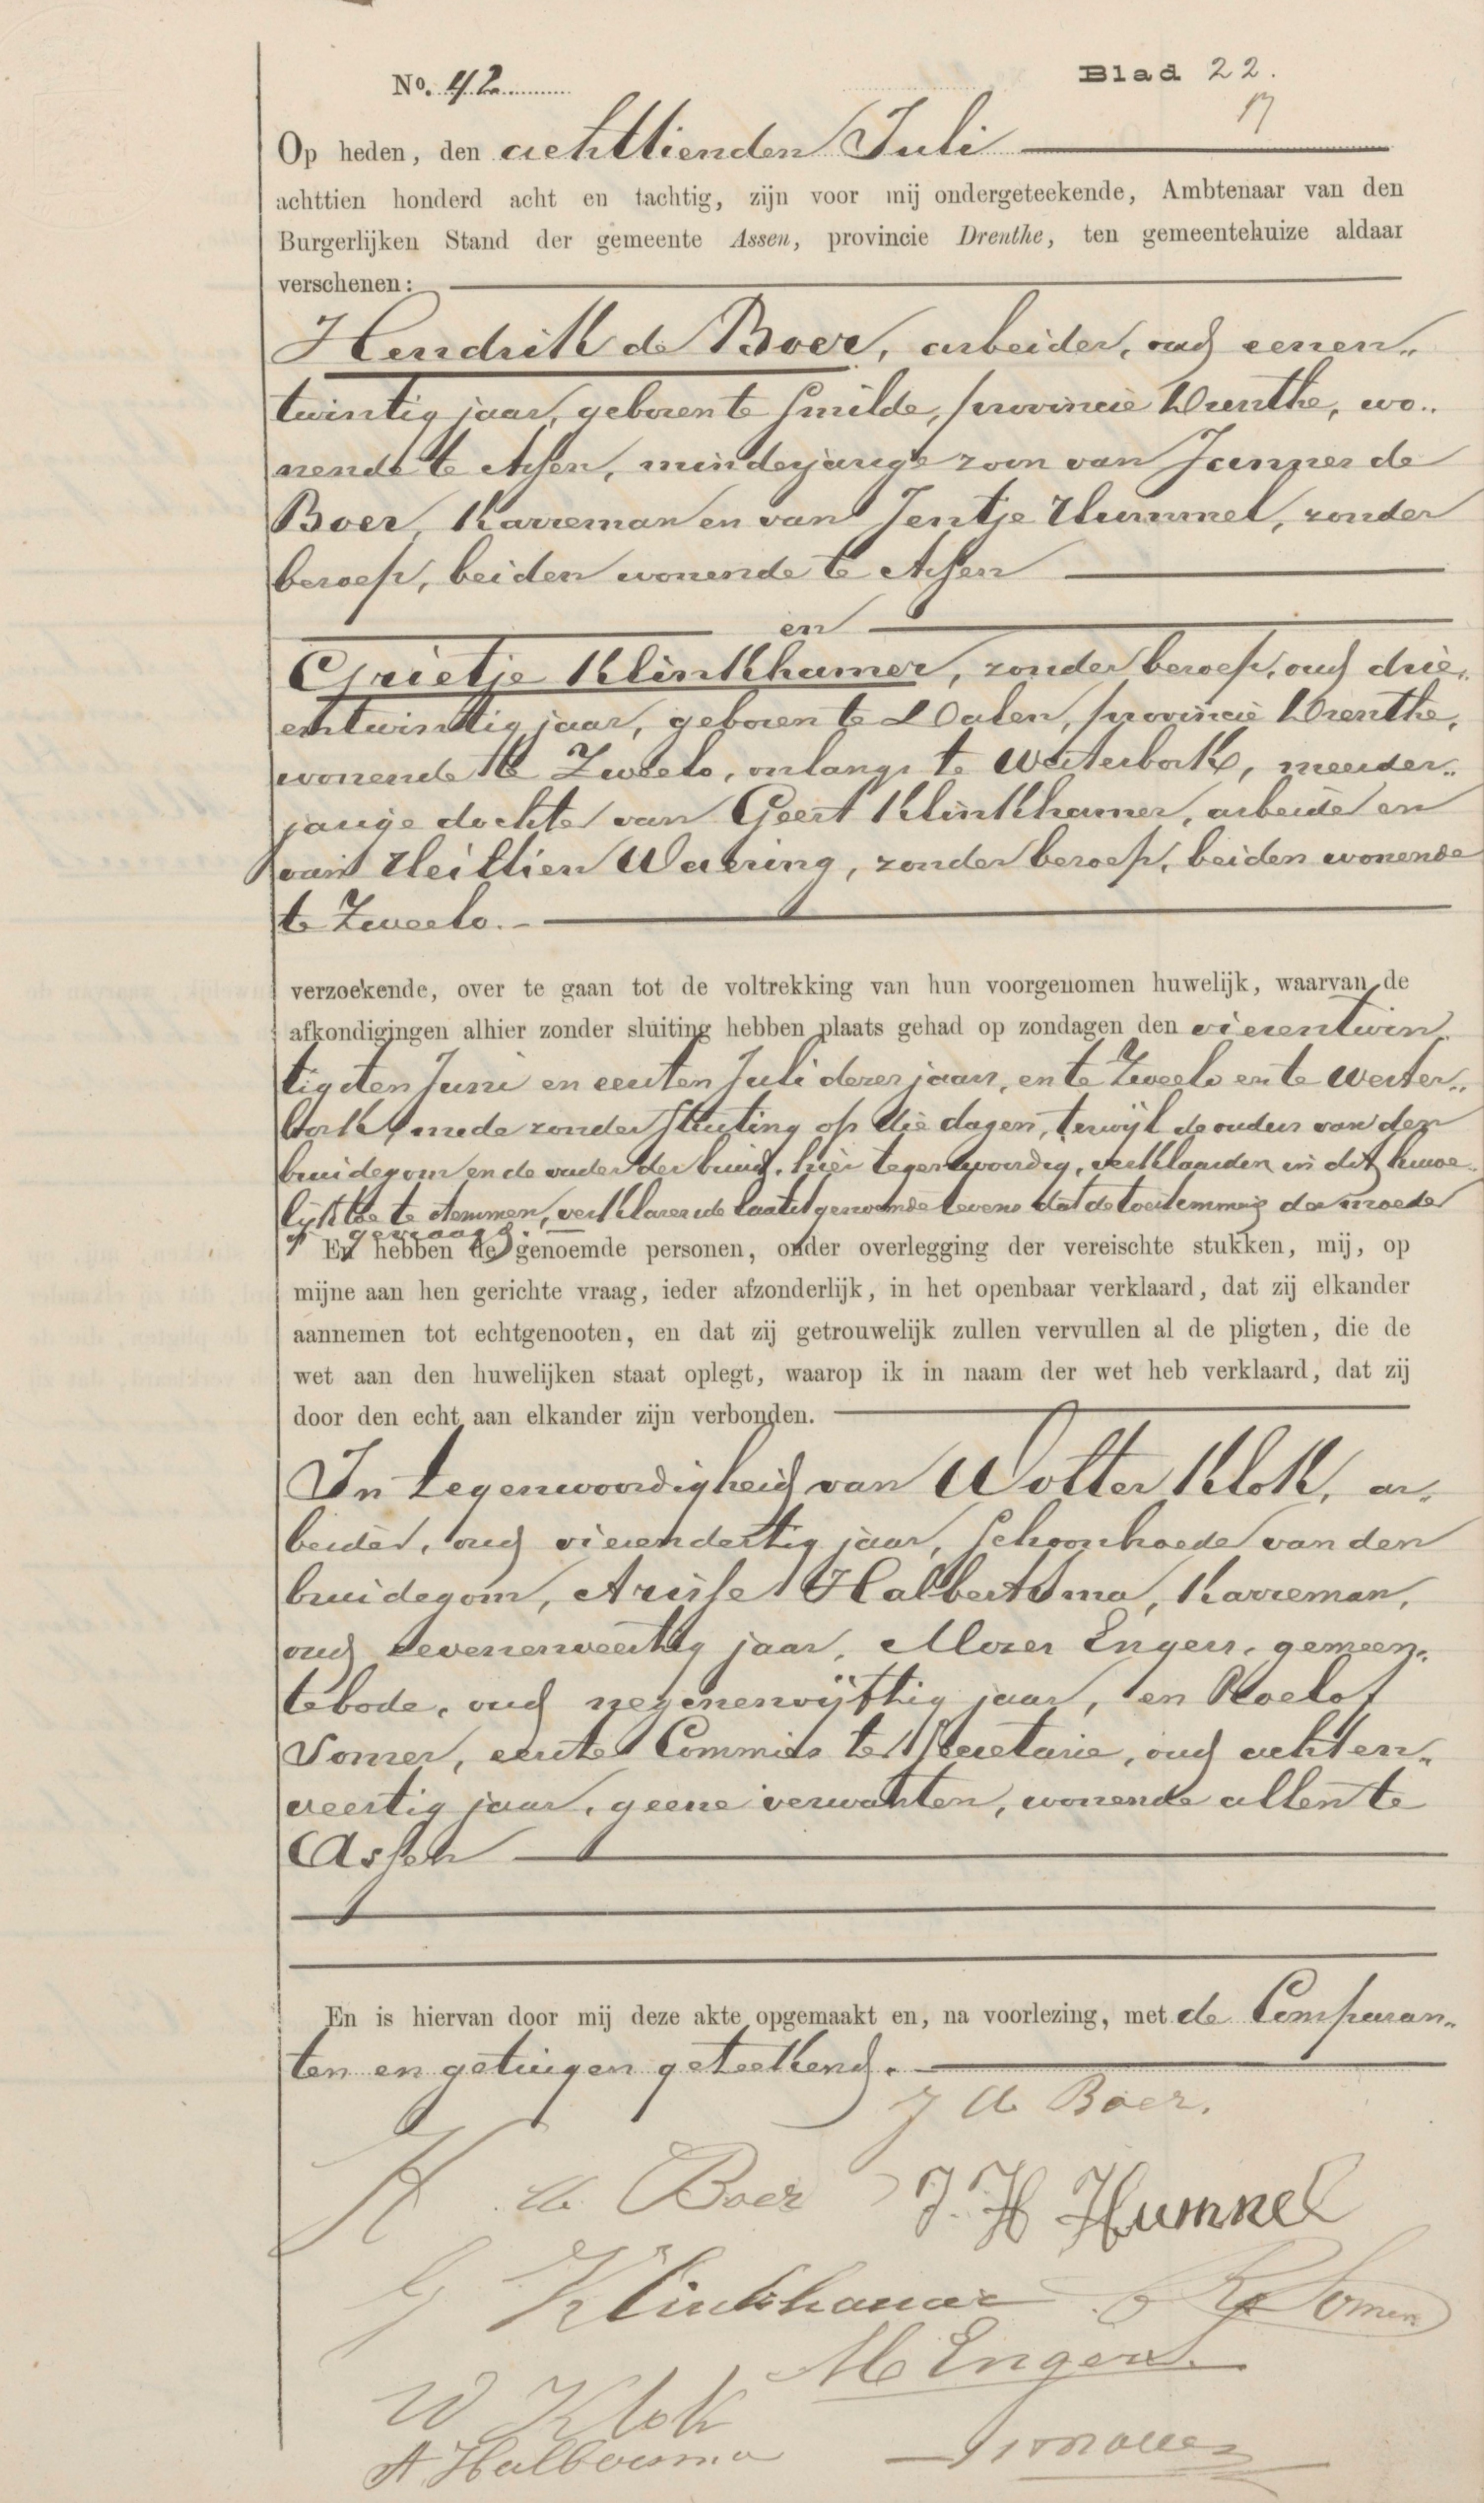 No. 42
Blad 22.
17
Op heden, den achttienden Juli
achttien honderd acht en tachtig, zijn voor mij ondergeteekende, Ambtenaar van den
Burgerlijken Stand der gemeente Assen, provincie Drenthe, ten gemeentehuize aldaar
verschenen:
Hendrik de Boer, arbeider, oud eenen„
twintig jaar, geboren te Smilde, provincie Drenthe, wo„
nende te Assen, minderjarige zoon van Jannes de
Boer, Karreman en van Jentje Hummel, zonder
beroep, beiden wonende te Assen
en
Grietje Klinkhamer, zonder beroep, oud drie„
entwintig jaar, geboren te Dalen, provincie Drenthe,
wonende te Zweelo, onlangs te Westerbork, meerder„
jarige dochter van Geert Klinkhamer, arbeider en
van Heiltien Waering, zonder beroep, beiden wonende
te Zweelo.
verzoekende, over te gaan tot de voltrekking van hun voorgenomen huwelijk, waarvan de
afkondigingen alhier zonder sluiting hebben plaats gehad op zondagen den vierentwin
tigsten Juni en eersten Juli dezer jaar, en te Zweelo en te Wester„
bork, mede zonder stuiting op die dagen, terwijl de ouders van den
bruidegom en de vader der bruid, hier tegenwoordig, verklaarden in dit huwe„
lijk toe te stemmen, verklarende laatstgenoemde tevens dat de toestemming der moeder
is gevraagd.
En hebben de genoemde personen, onder overlegging der vereischte stukken, mij, op
mijne aan hen gerichte vraag, ieder afzonderlijk, in het openbaar verklaard, dat zij elkander
aannemen tot echtgenooten, en dat zij getrouwelijk zullen vervullen al de pligten, die de
wet aan den huwelijken staat oplegt, waarop ik in naam der wet heb verklaard, dat zij
door den echt aan elkander zijn verbonden.
In tegenwoordigheid van Wolter Klok, ar„
beider, oud vierendertig jaar, schoonbroeder van den
bruidegom, Arisse Halbertsma, Karreman,
oud zevenenveertig jaar, Mozes Engers, gemeen„
tebode, oud negenenvijftig jaar, en Roelof
Somer, eerste Commies ter Secretarie, oud achten„
veertig jaar, geene verwanten, wonende allen te
Assen
En is hiervan door mij deze akte opgemaakt en, na voorlezing, met de Comparan„
ten en getuigen geteekend.
J de Boer.
H de Boer
J. H Hummel
G Klinkhamer
R Somer
M Engers
W Klok
A Halbersma